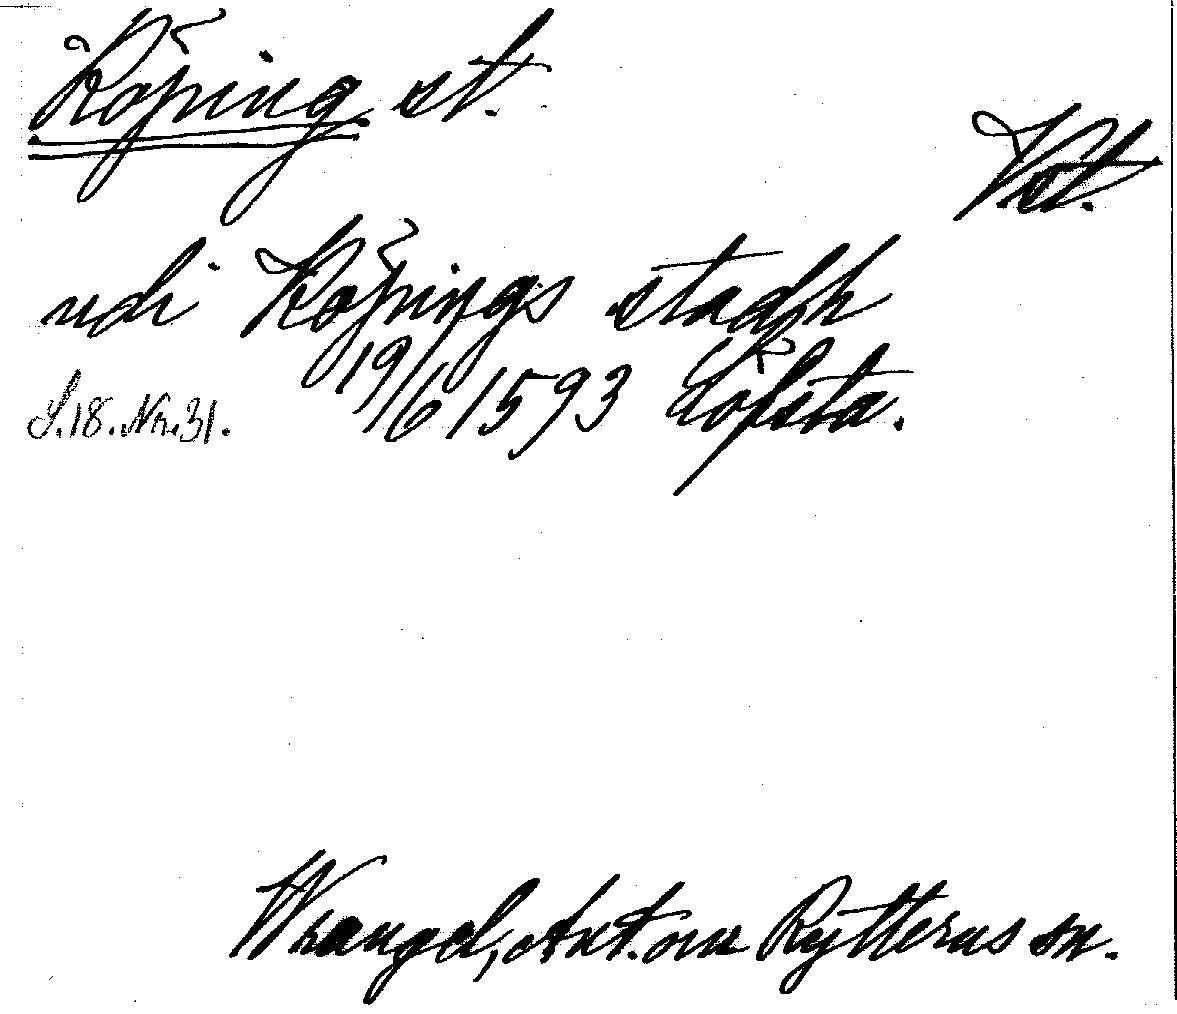 Köping st.
Vst.
udi Köpings stadh
19/6 1593 Löfsta.
S.18.Nr.31.
Wrangel, Ant. om Rytterns sn.